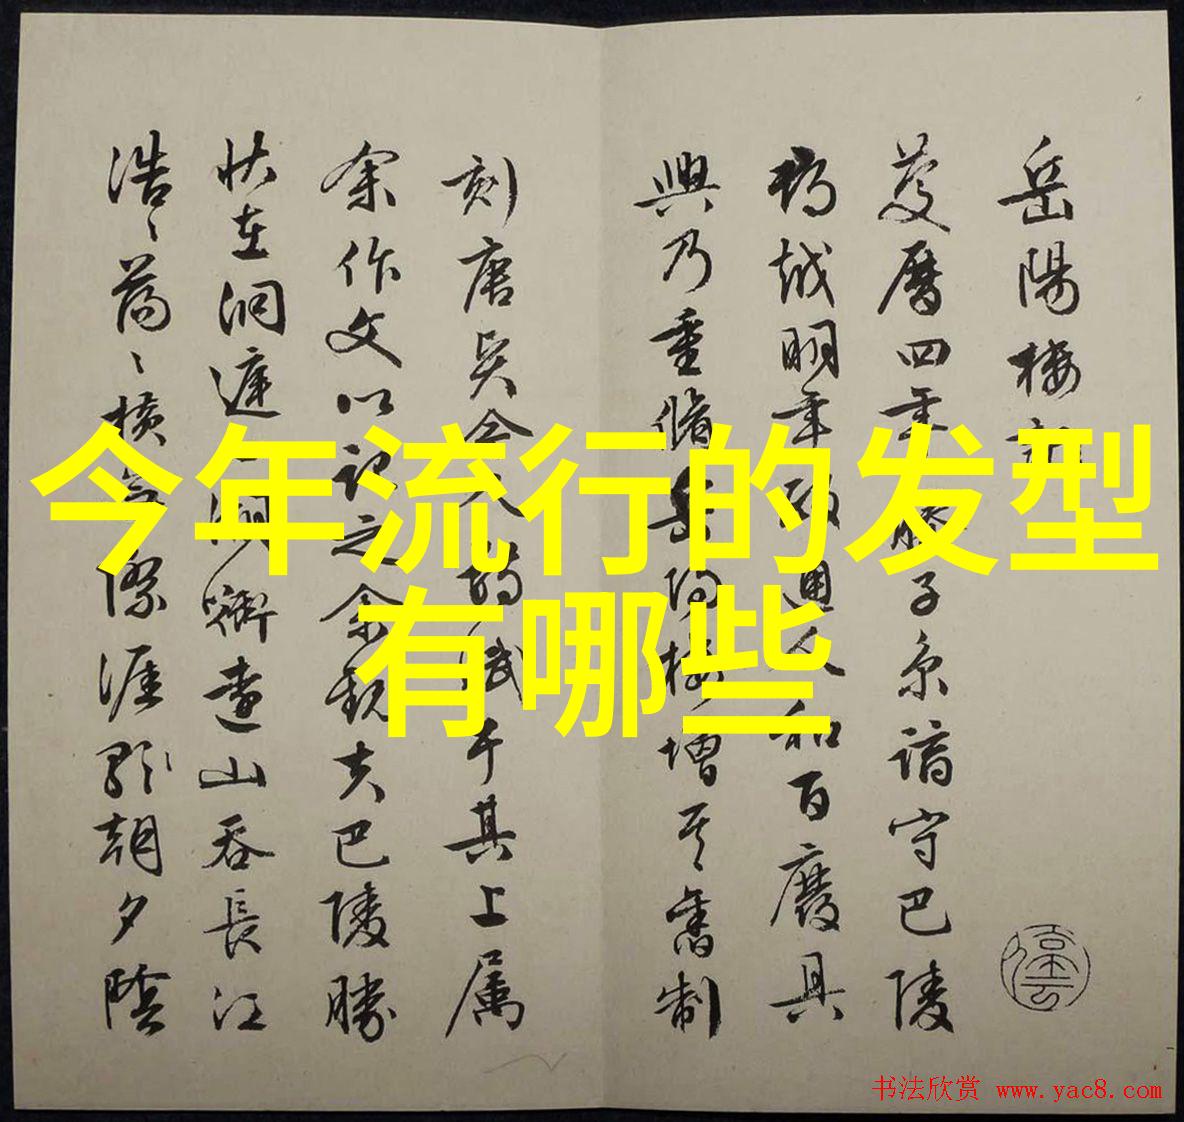 今年流行的发型
有哪些
岳陽樓記
慶曆四年 滕子京謫守巴陵
郡越明年政通人和百廢具
興乃重脩岳陽樓增其舊制
刻唐賢今人詩賦于其上属
余作文以記之余観夫巴陵勝
状在洞庭一湖銜遠山吞長江
浩〻蕩〻横無際涯 朝夕陰
书法欣赏 www.yac8.com